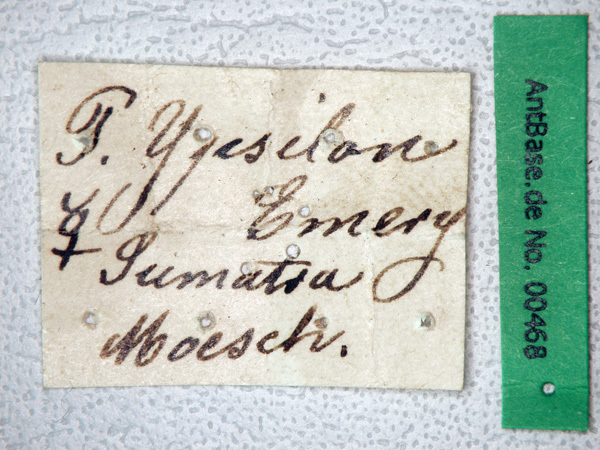 T. Ypsilon
☿ Emery
Sumatra
Moesch.
AntBase.de No. 00468